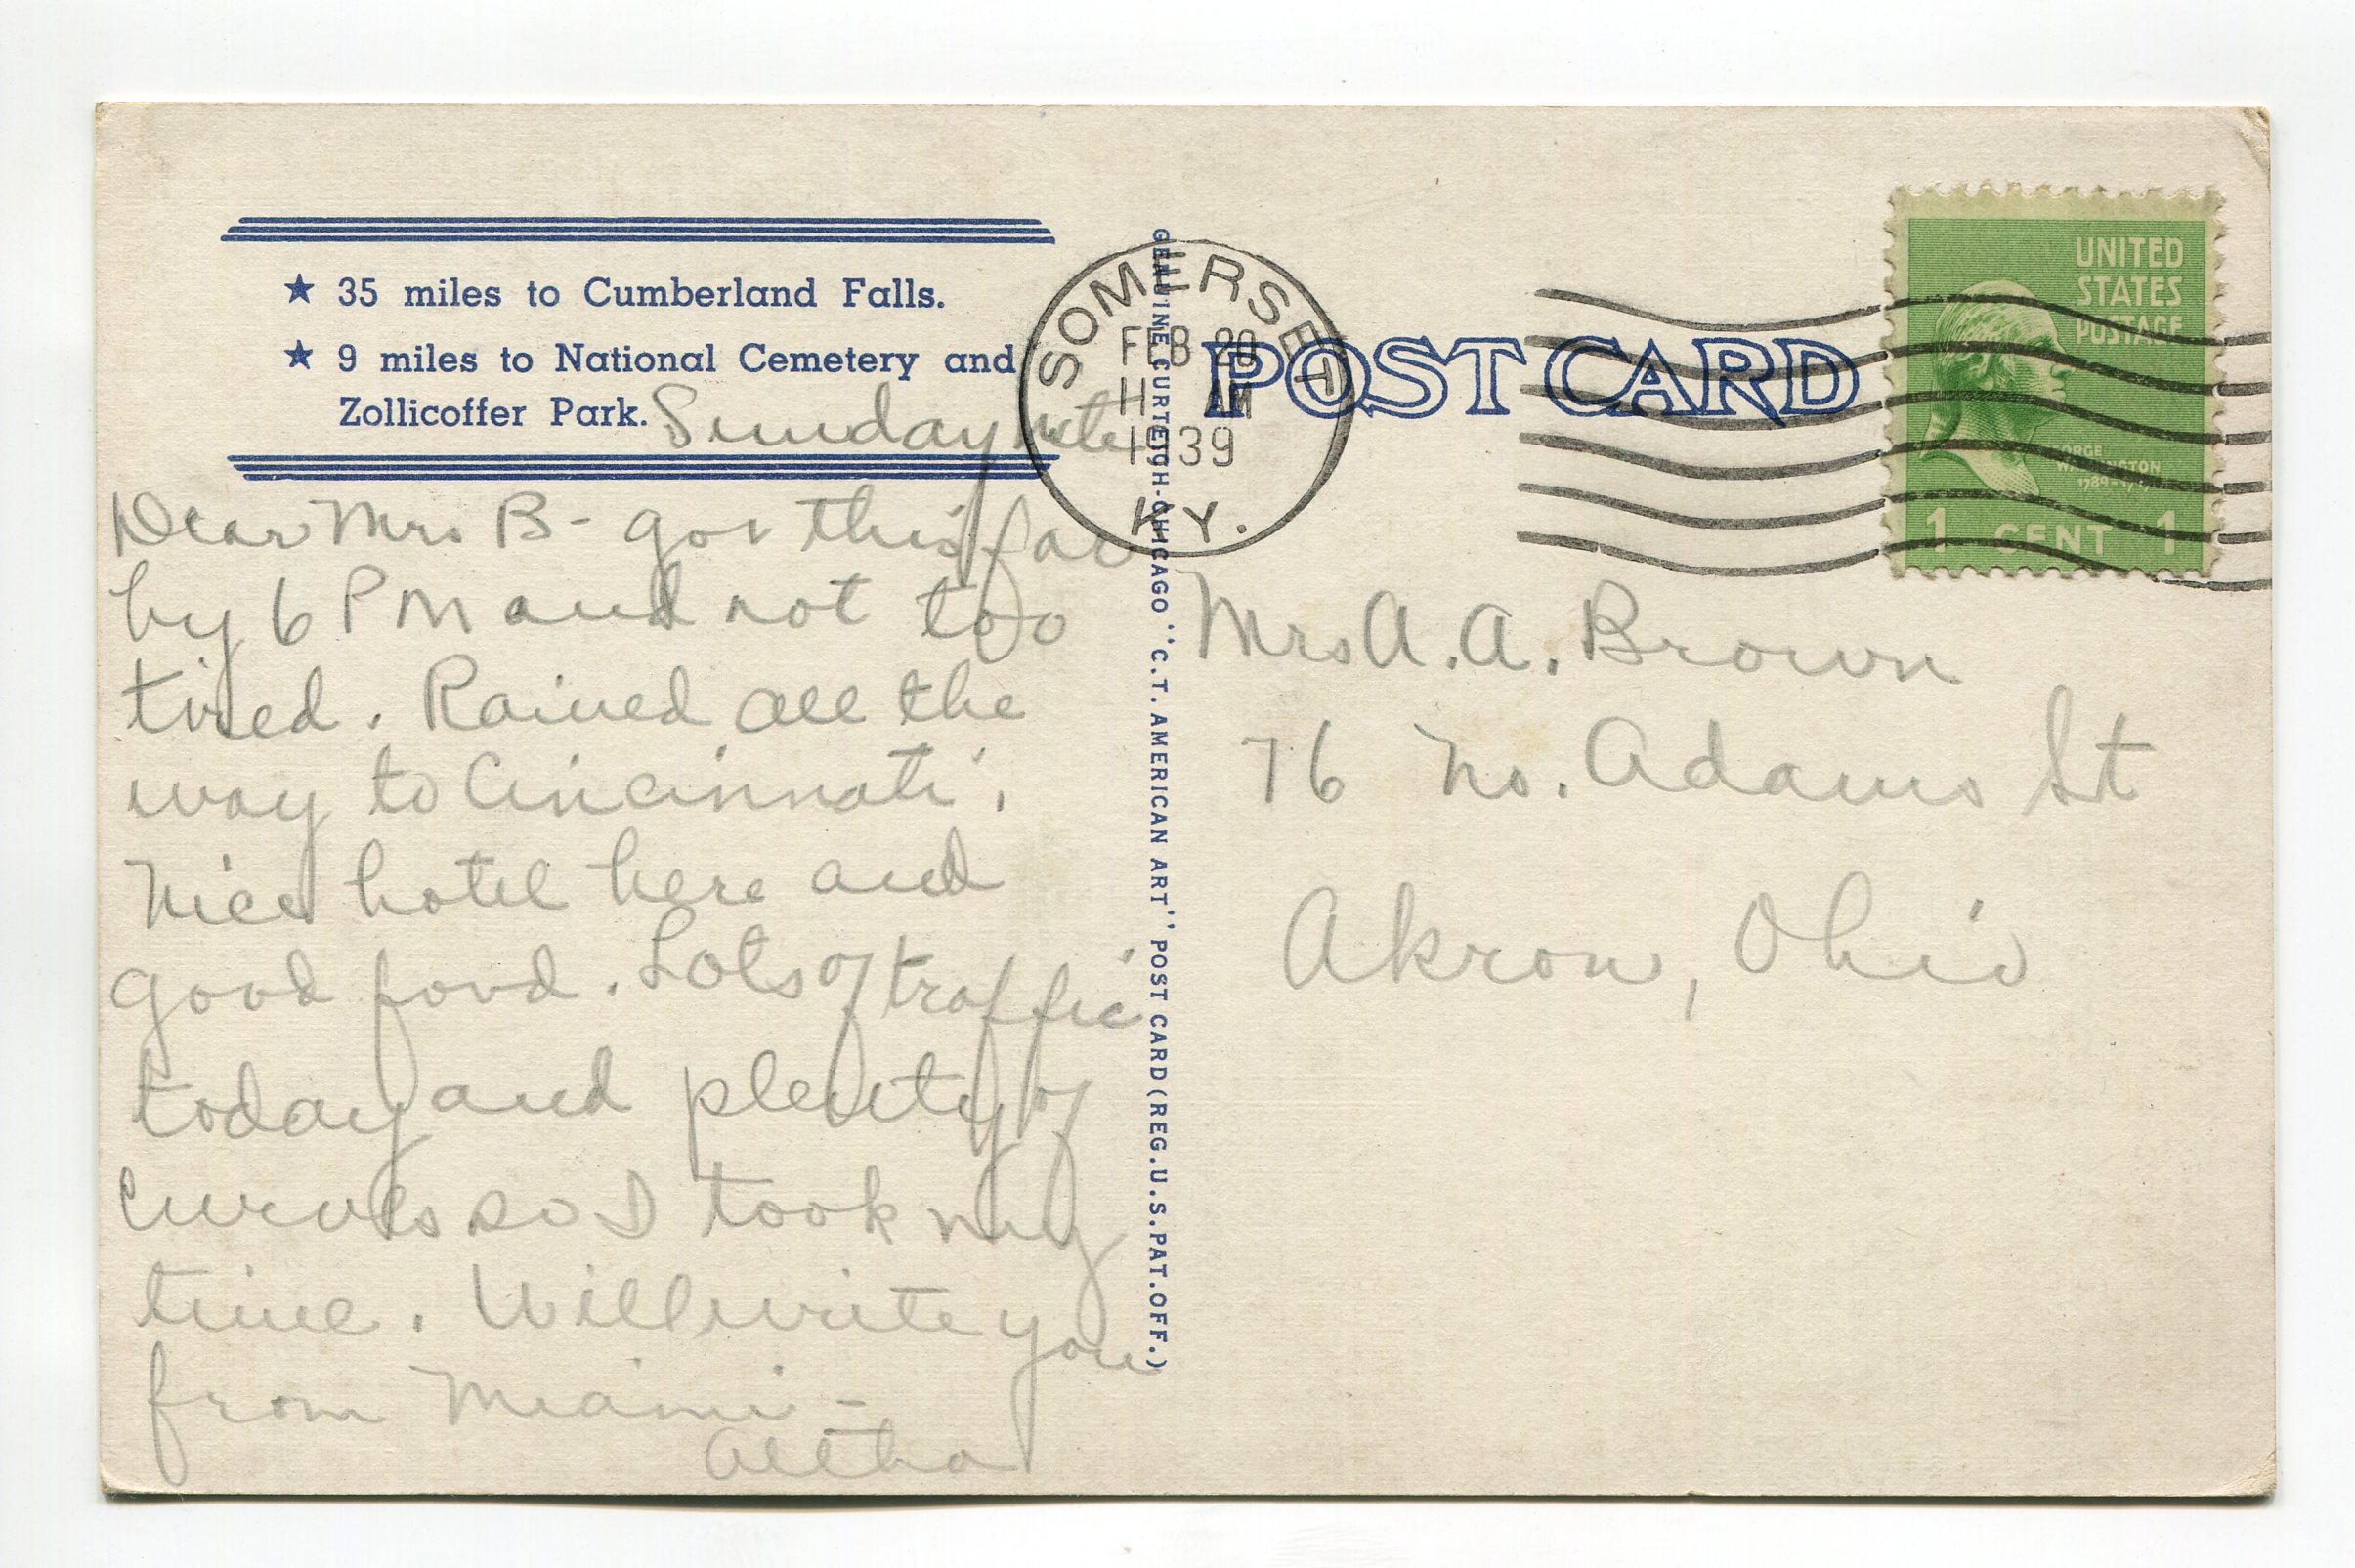 ★ 35 miles to Cumberland Falls.
★ 9 miles to National Cemetery and
Zollicoffer Park.
Sunday nite
Dear Mrs B - got this far
by 6 PM and not too
tired. Rained all the
way to Cincinnati.
Nice hotel here and
good food. Lots of traffic
today and plenty of
curves so I took my
time. Will write you
from Miami -
Altha
GENUINE CURTEICH-CHICAGO "C.T. AMERICAN ART" POST CARD (REG. U.S. PAT. OFF.)
SOMERSET
FEB 20
AM
1939
KY.
POST CARD
UNITED
STATES
POSTAGE
GEORGE
WASHINGTON
1 CENT 1
Mrs A. A. Brown
76 No. Adams St
Akron, Ohio